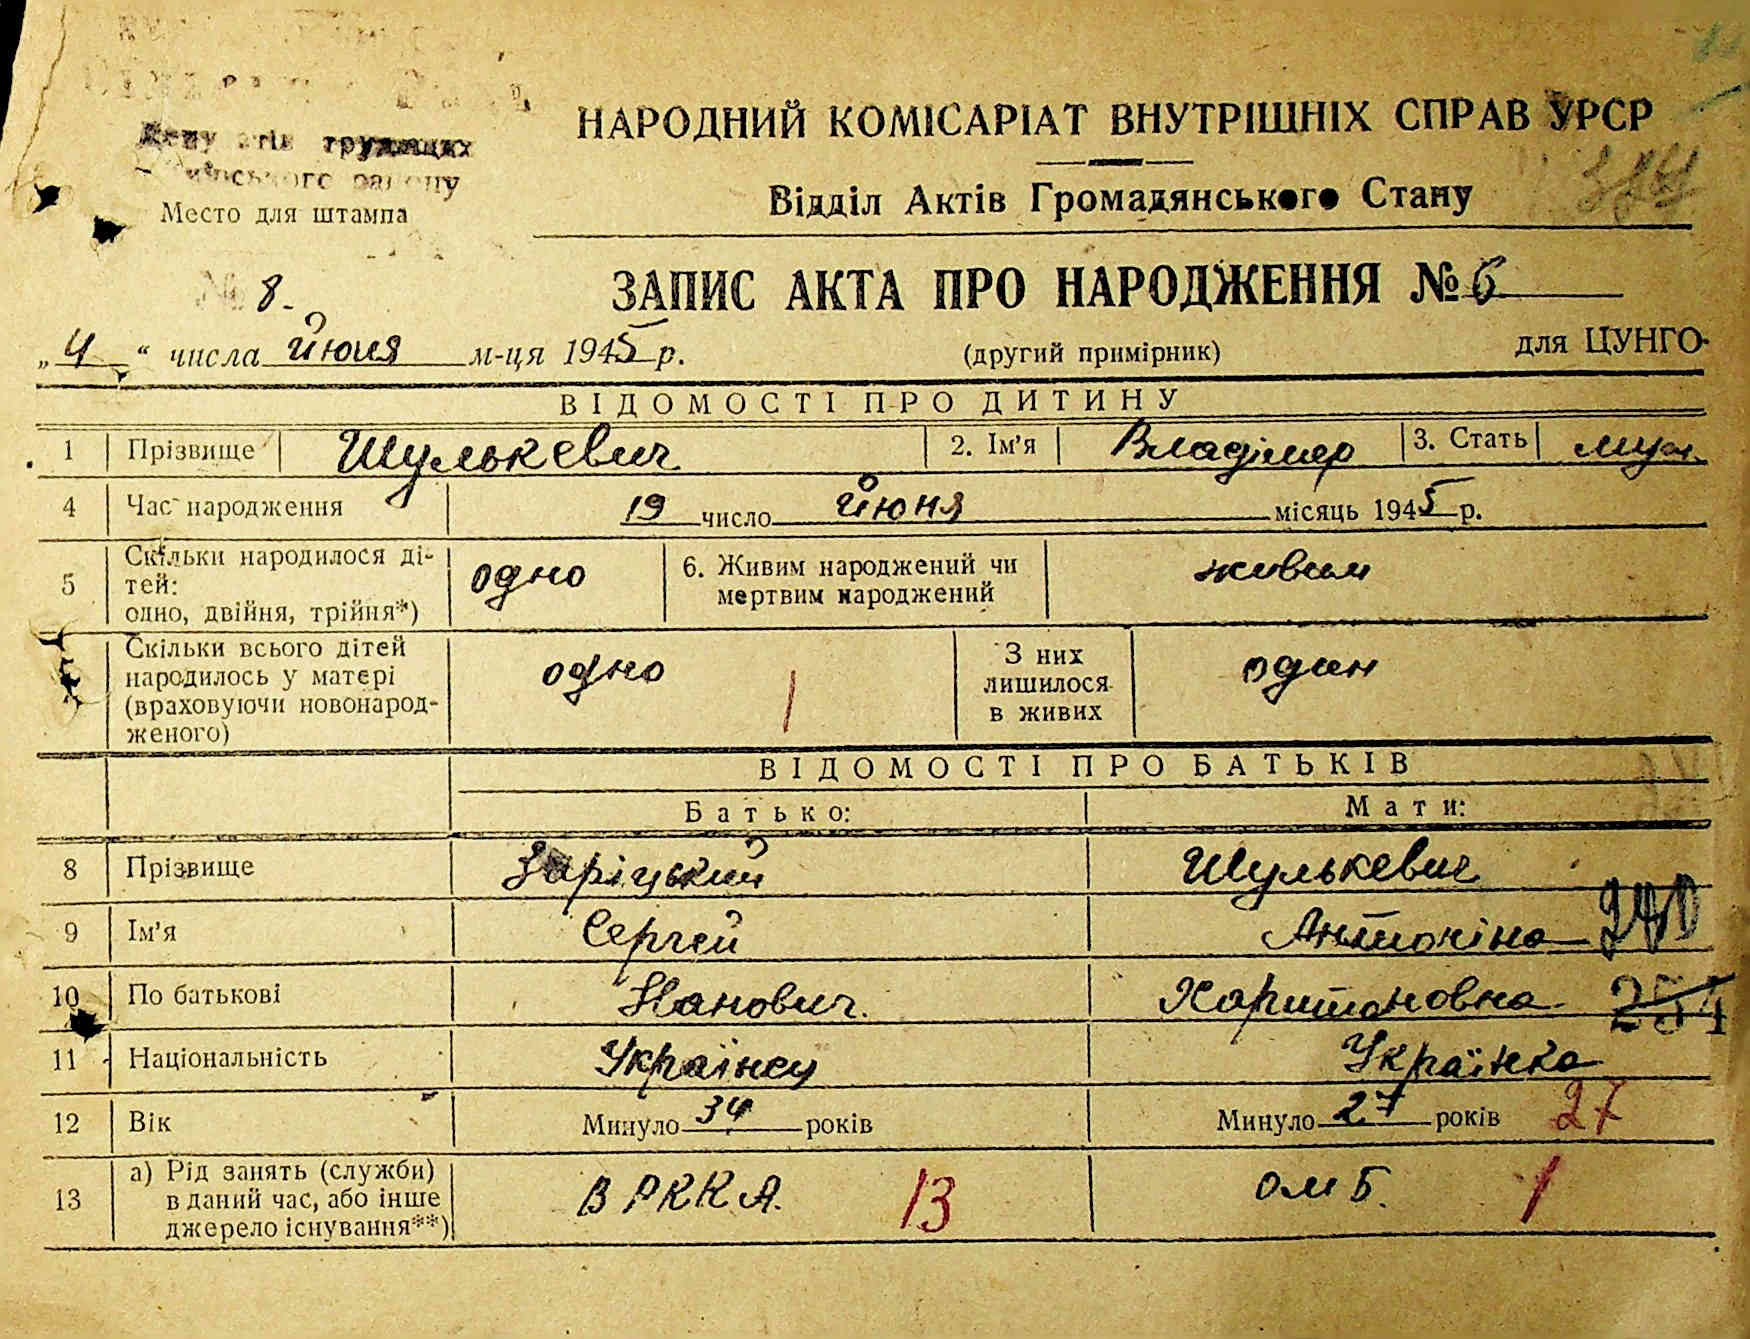 трудящих
Место для штампа
НАРОДНИЙ КОМІСАРІАТ ВНУТРІШНІХ СПРАВ УРСР
Відділ Актів Громадянського Стану
№ 8.
ЗАПИС АКТА ПРО НАРОДЖЕННЯ № 6
„4“ числа июня м-ця 1945 р. (другий примірник) для ЦУНГО
ВІДОМОСТІ ПРО ДИТИНУ
1 Прізвище Шулькевич 2. Ім'я Владімер 3. Стать муж.
4 Час народження 19 число июня місяць 1945 р.
5 Скільки народилося ді-
тей:
одно, двійня, трійня*) одно 6. Живим народжений чи
мертвим народжений живим
Скільки всього дітей
народилось у матері
(враховуючи новонарод-
женого) одно 1 З них
лишилося
в живих один
ВІДОМОСТІ ПРО БАТЬКІВ
Батько: Мати:
8 Прізвище Заріцький Шулькевич
9 Ім'я Сергей Антоніна 240
10 По батькові Іванович. Харитоновна 254
11 Національність Українец Українка
12 Вік Минуло 34 років Минуло 27 років 27
13 а) Рід занять (служби)
в даний час, або інше
джерело існування**) В РККА. 13 ОМБ. 1